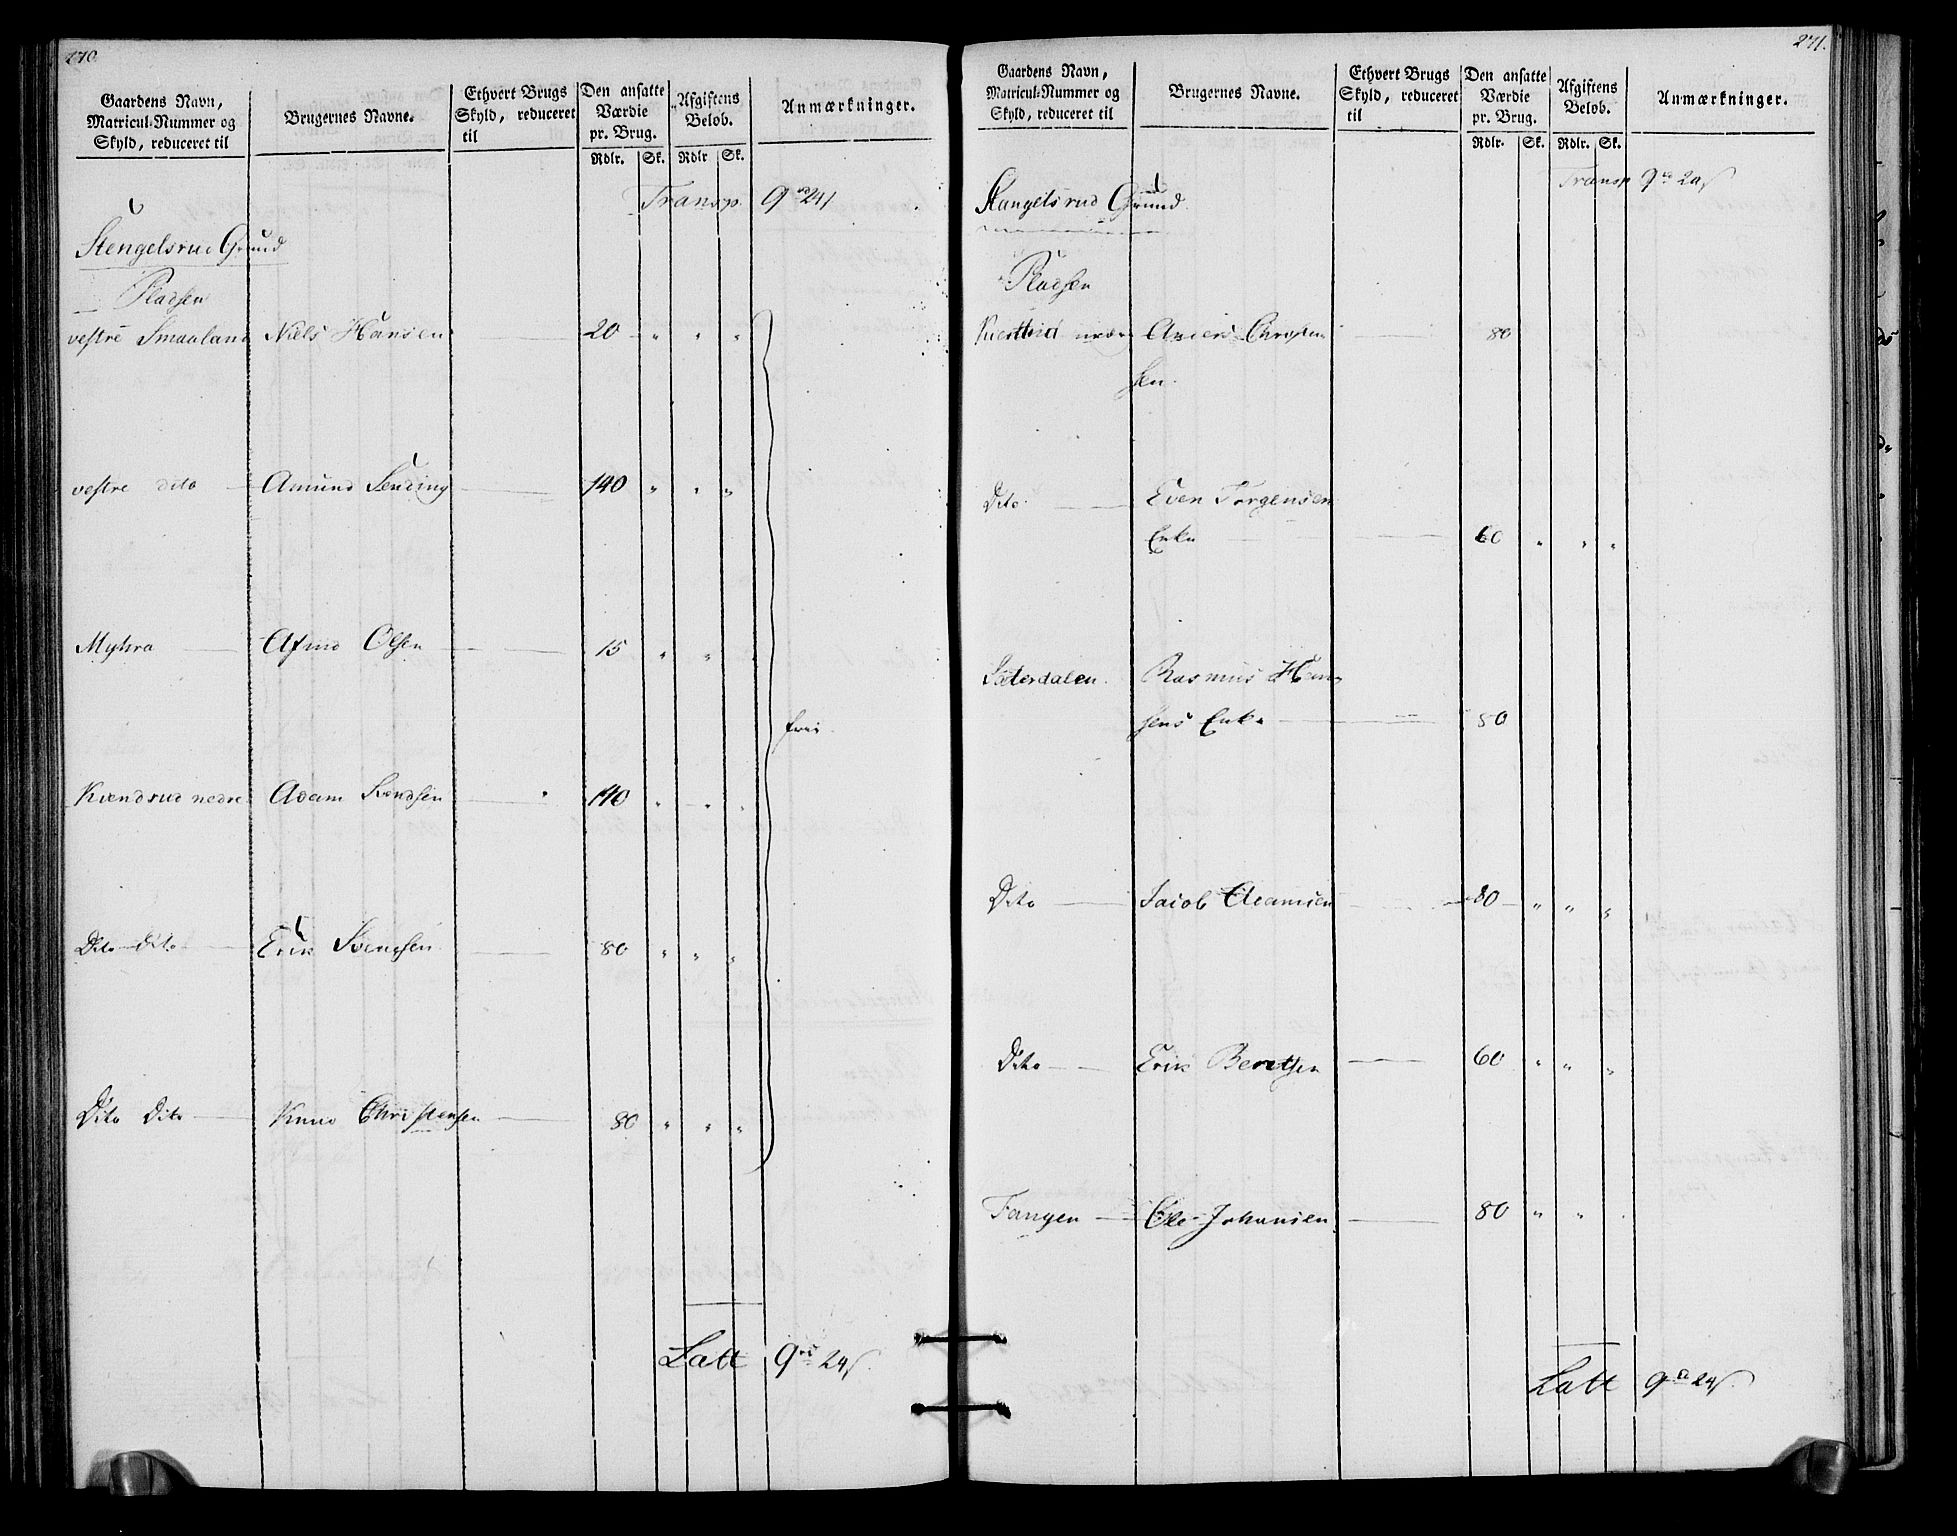 270.
Gaardens Navn,
Matricul-Nummer og
Skyld, reduceret til
Brugernes Navne.
Ethvert Brugs
Skyld, reduceret
til
Den ansatte
Værdie
pr. Brug.
Rdlr. Sk.
Afgiftens
Beløb.
Rdlr Sk.
Anmærkninger.
Transp. 9 rd 24
Stengelsrud Grund
Pladsen
vestre Smaaland Niels Hansen 20 " " "
vestre dito Amund Sending 140 " " "
Myhra Asmund Olsen 15 " "
frie.
Kvendsrud nedre Adam Svendsen 140 " " "
Dito dito Erik Svendsen 80 " " "
Dito Dito Knud Christensen 80 " " "
Latt 9 rd 24 s.
271.
Gaardens Navn,
Matricul-Nummer og
Skyld, reduceret til
Brugernes Navne.
Ethvert Brugs
Skyld, reduceret
til
Den ansatte
Værdie
pr. Brug.
Rdlr. Sk.
Afgiftens
Beløb.
Rdlr. Sk.
Anmærkninger.
Transp 9 rd 24 s
Stangelsrud Grund
Pladsen
Anders Christen
sen. 80
Dito Even Jørgensen
Enke 60 " " "
Sæterdalen. Rasmus Han
sens Enke 80
Dito Jacob Adamsen 80 " " "
Dito Erik Berntsen 60 " " "
Tangen Ole Johansen 80 " "
Latt 9 rd 24 s.